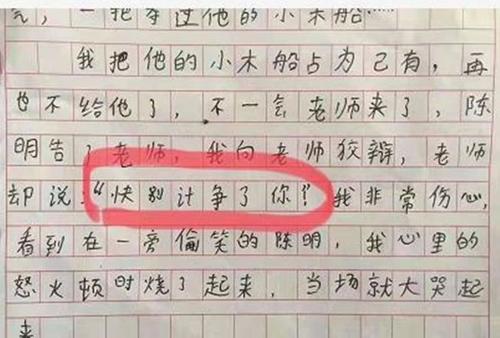 气，一把夺过他的小木船……
我把他的小木船占为己有，再
也不给他了，不一会老师来了，陈
明告了老师，我向老师狡辩，老师
却说：“快别计争了你！”我非常伤心，
看到在一旁偷笑的陈明，我心里的
怒火顿时烧了起来，当场就大哭起
来